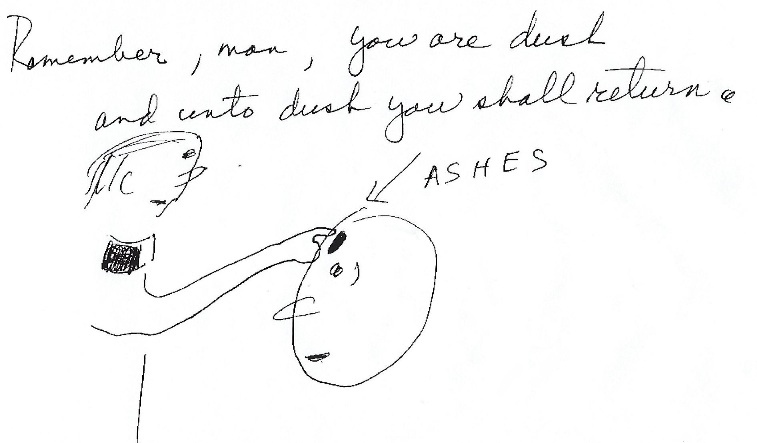 Remember, man, you are dust
and unto dust you shall return.
ASHES